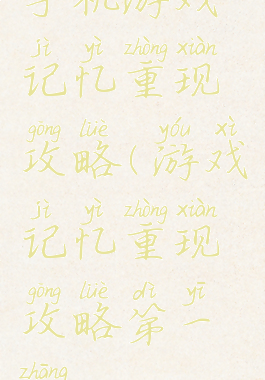 手机游戏
jì yì zhòng xiàn
记忆重现
gōng lüè yóu xì
攻略(游戏
jì yì zhòng xiàn
记忆重现
gōng lüè dì yī
攻略第一
zhāng